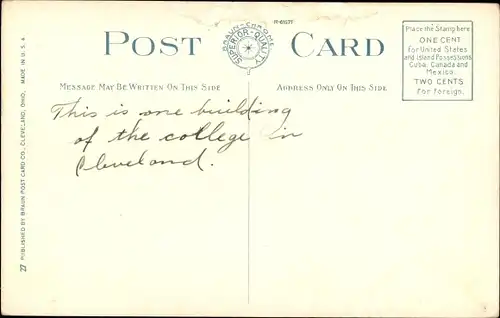 R-61077
POST CARD
BRAUN-CHROME
SUPERIOR-QUALITY
Place the Stamp here
ONE CENT
for United States
and Island Possessions
Cuba, Canada and
Mexico.
TWO CENTS
for foreign.
MESSAGE MAY BE WRITTEN ON THIS SIDE
ADDRESS ONLY ON THIS SIDE
This is one building
of the college in
Cleveland.
27 PUBLISHED BY BRAUN POST CARD CO., CLEVELAND, OHIO. MADE IN U. S. A.